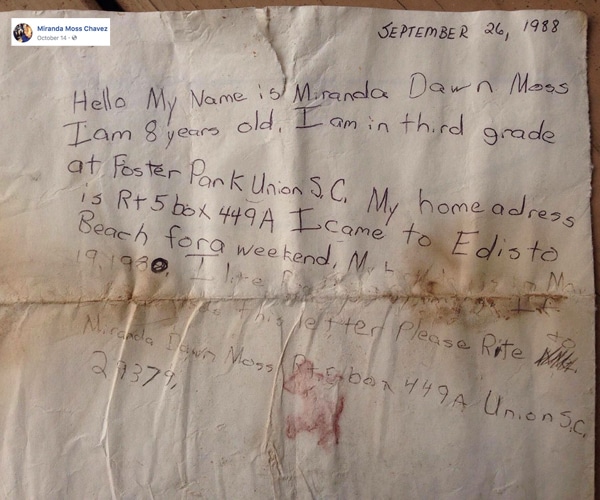 Miranda Moss Chavez
October 14
SEPTEMBER 26, 1988
Hello My Name is Miranda Dawn Moss
I am 8 years old. I am in third grade
at Foster Park Union S.C. My home adress
is Rt 5 box 449A I came to Edisto
Beach for a weekend.
19, 1980. I
this letter Please Rite to
Miranda Dawn Moss Rt 5 box 449A Union S.C.
29379.